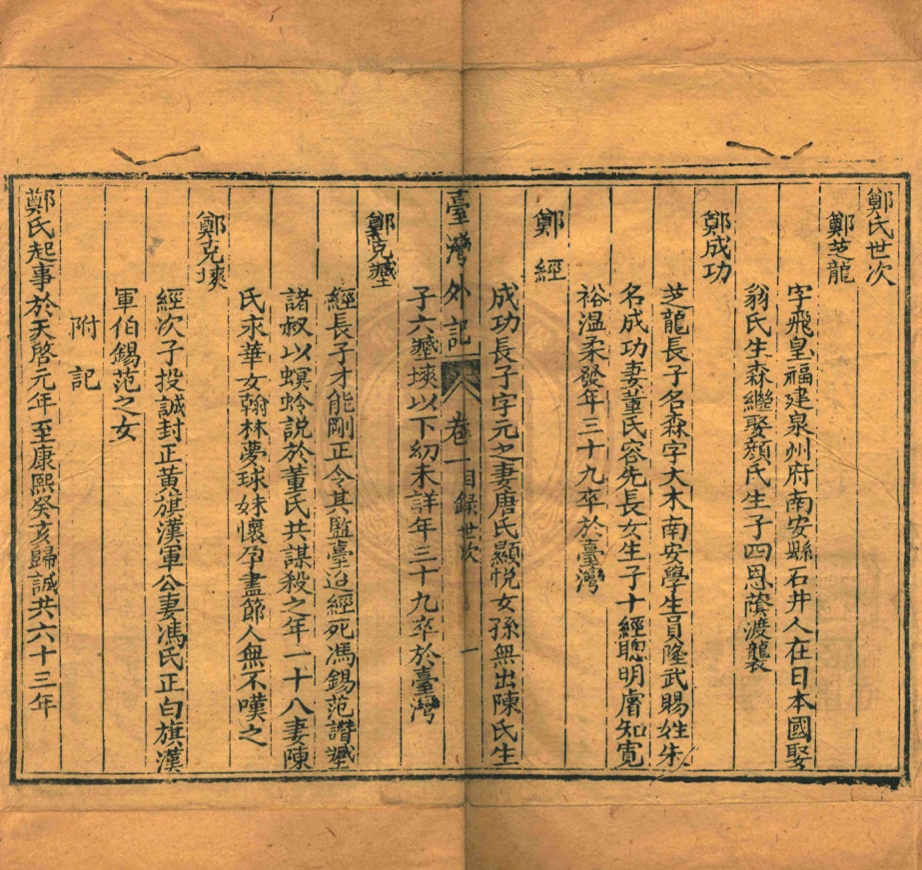 鄭氏世次
鄭芝龍
字飛皇福建泉州府南安縣石井人在日本國娶
翁氏生森繼娶顏氏生子四恩蔭渡襲
鄭成功
芝龍長子名森字大木南安學生員隆武賜姓朱
名成功妻董氏容先長女生子十經聰明睿知寬
裕溫柔發年三十九卒於臺灣
鄭經
成功長子字元之妻唐氏顯悅女孫無出陳氏生
臺灣外記 卷一 目錄世次 一
子六𡒉塽以下幼未詳年三十九卒於臺灣
鄭克𡒉
經長子才能剛正令其監臺迨經死馮錫范譖𡒉
諸叔以螟蛉說於董氏共謀殺之年一十八妻陳
氏永華女翰林夢球妹懷孕盡節人無不嘆之
鄭克塽
經次子投誠封正黃旗漢軍公妻馮氏正白旗漢
軍伯錫范之女
附記
鄭氏起事於天啓元年至康熙癸亥歸誠共六十三年